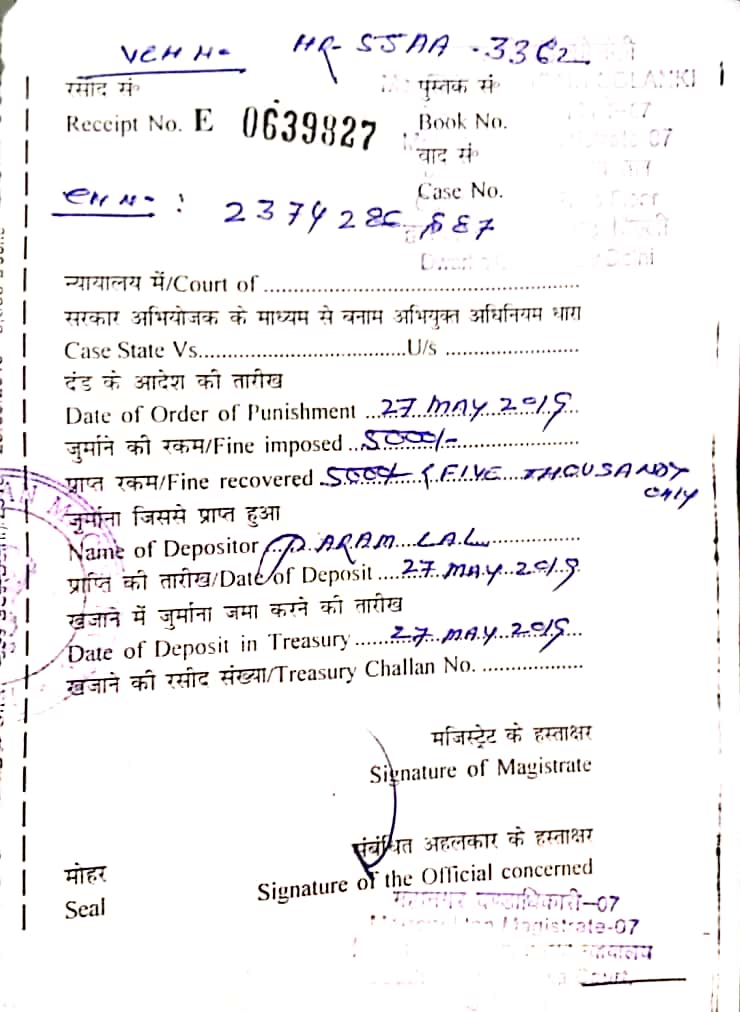 VEH N- HR-55AA-3362
रसीद सं॰
Receipt No. E 0639827
पुस्तक सं॰
Book No.
वाद सं॰
Case No.
CH N- : 2374286
न्यायालय में/Court of
सरकार अभियोजक के माध्यम से बनाम अभियुक्त अधिनियम धारा
Case State Vs. U/s
दंड के आदेश की तारीख
Date of Order of Punishment 27 MAY 2019
जुर्माने की रकम/Fine imposed 5000/-
प्राप्त रकम/Fine recovered 5000/- (FIVE THOUSAND
ONLY
जुर्माना जिससे प्राप्त हुआ
Name of Depositor PARAM LAL
प्राप्ति की तारीख/Date of Deposit 27 MAY 2019
खजाने में जुर्माना जमा करने की तारीख
Date of Deposit in Treasury 27 MAY 2019
खजाने की रसीद संख्या/Treasury Challan No.
मजिस्ट्रेट के हस्ताक्षर
Signature of Magistrate
संबंधित अहलकार के हस्ताक्षर
Signature of the Official concerned
मोहर
Seal
महानगर दण्डाधिकारी-07
Magistrate-07